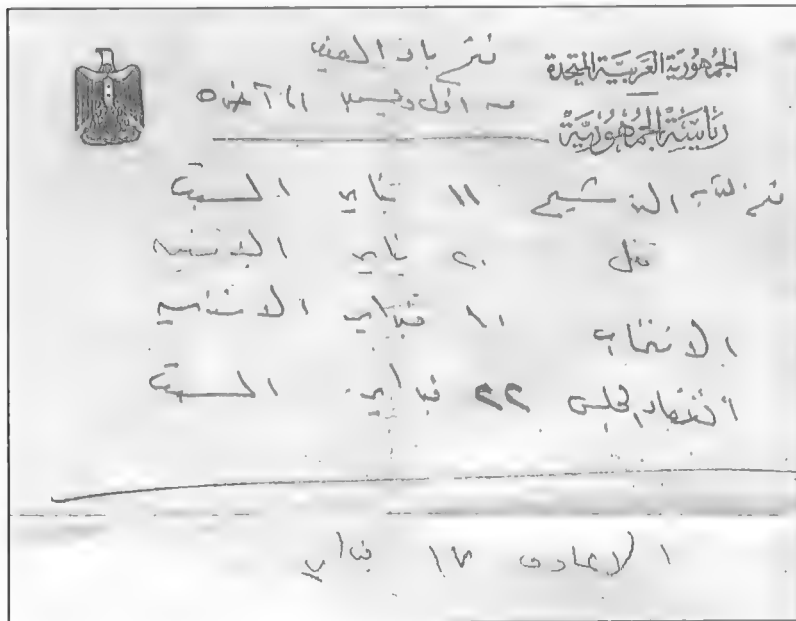 الجمهورية العربية المتحدة
رئاسة الجمهورية
فتح باب
من أول ديسمبر إلى آخره
فتح باب الترشيح ١١ يناير السبت
قفل ٢٠ يناير الاثنين
الانتخاب ١٠ فبراير الاثنين
انعقاد المجلس ٢٢ فبراير السبت
الاعادة ١٧ فبراير